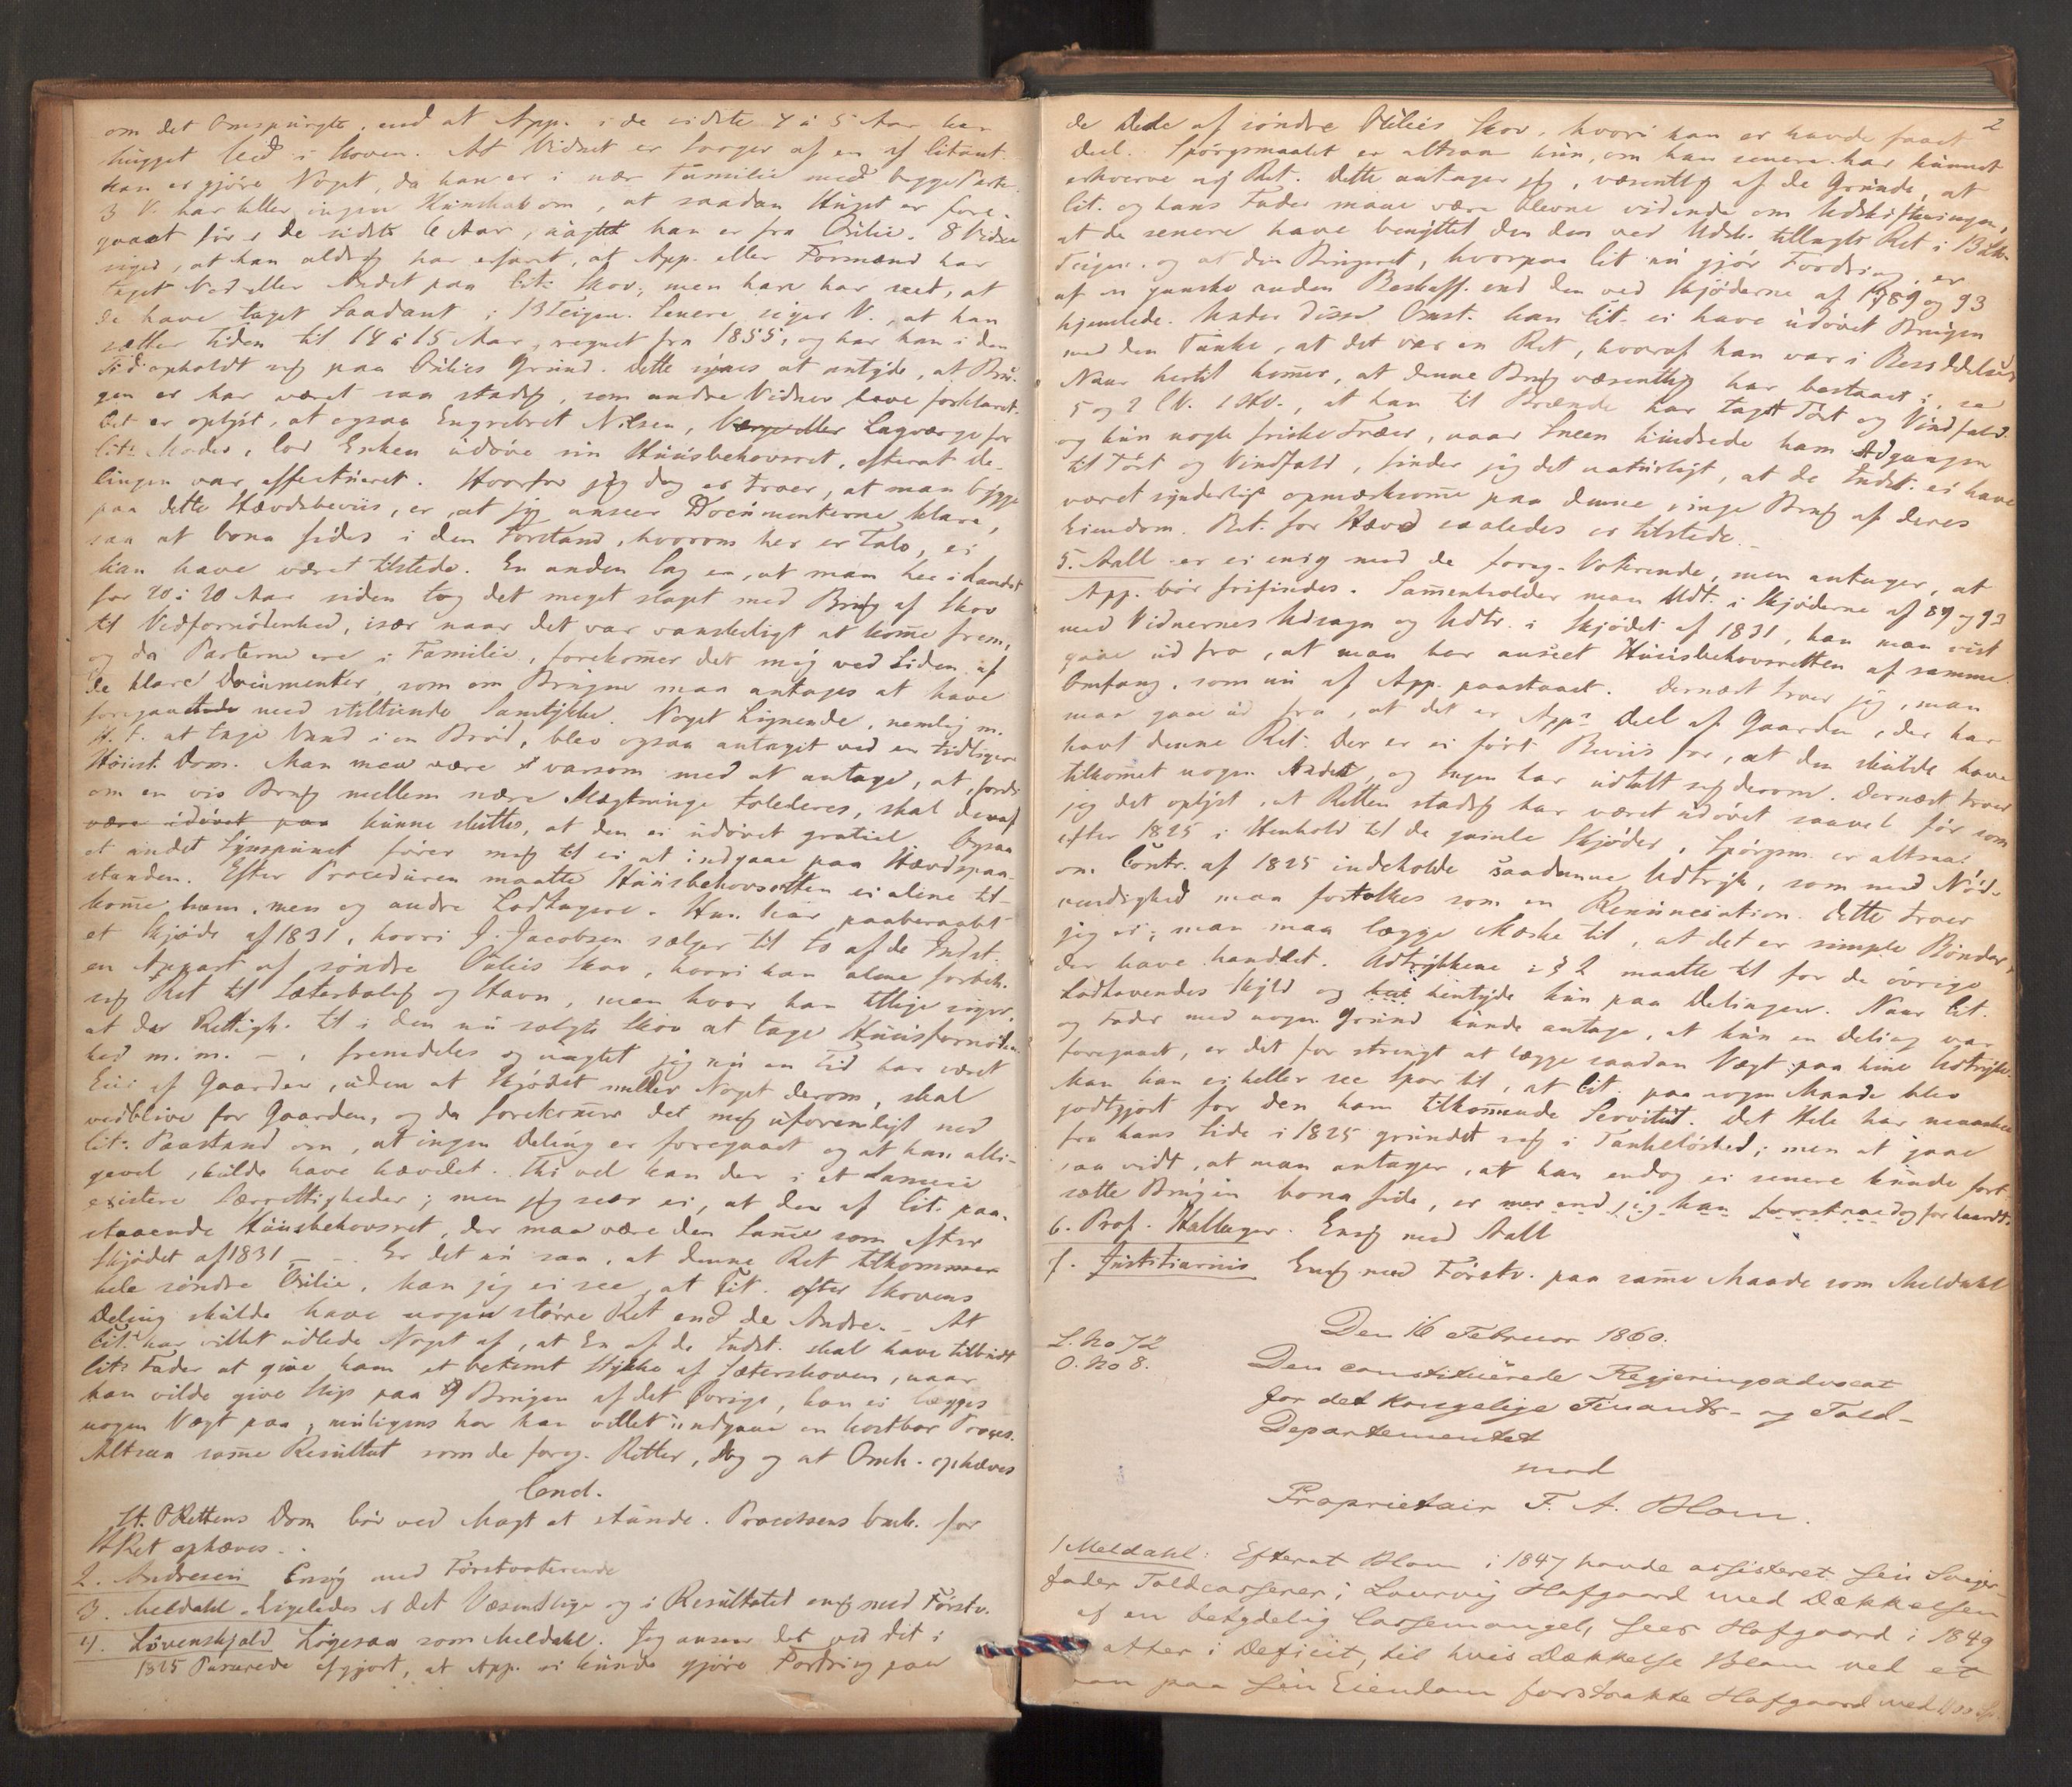 om det Omspurgte, end at App. i de sidste 4 à 5 Aar har
hugget Ved i Skoven. At Vidnet er Svoger af en af Citant.
kan ei gjøre Noget, da han er i nær Familie med begge Parter.
3 V. har heller ingen Kundskab om, at saadan Hugst er fore-
gaaet før i de sidste 6 Aar, uagtet han er fra Oulie. 8 Vidne
siger, at han aldrig har erfaret, at App. eller Formænd har
taget Ved eller Andet paa Cit: Skov, men han har seet, at
de have taget Saadant i 13 Teigen. Senere siger V., at han
sætter Tiden til 14 à 15 Aar, regnet fra 1855, og har han i den
Tid opholdt sig paa Oulies Grund. Dette synes at antyde, at Bru-
gen ei har været saa stadig, som andre Vidner have forklaret.
Det er oplyst, at ogsaa Engebret Nilsen, Værge eller Lagværge for
Cit: Moder, lod Enken udøve sin Huusbehovsret, efterat De-
lingen var effectueret. Hvorfor jeg dog ei troer, at man bygge
paa dette Hævdsbeviis, er, at jeg anseer Documenterne klare,
saa at bona fides i den Forstand, hvorom her er Tale, ei
kan have været tilstede. En anden Sag er, at man her i Landet
for 20 à 20 Aar siden tog det meget slapt med Brug af Skov
til Vedfornødenhed, især naar det var vanskeligt at komme frem,
og da Parterne ere i Familie, forekommer det mig ved Siden af
de klare Documenter, som om Brugen maa antages at have
foregaaet med stiltiende Samtykke. Noget Lignende, nemlig m.
H. t. at tage Vand i en Brød, blev ogsaa antaget ved en tidligere
Høiest. Dom. Man maa være varsom med at antage, at, fordi
om en vis Brug mellem nære Slægtninge tolereres, skal deraf
være udøvet paa kunne sluttes, at den ei udøvet gratiel. Ogsaa
et andet Synspunct fører mig til ei at indgaae paa Hævdspaa-
standen. Efter Proceduren maatte Huusbehovsretten ei alene til-
komme ham, men og andre Lodtagere. Han har paaberaabt
et Skjøde af 1831, hvori J. Jacobsen sælger til to af de Indst.
en Appart af søndre Oulies Skov, hvori han alene forbeh.
sig Ret til Sæterbolig og Havn, men hvor han tillige siger,
at der Rettigh. til i den nu solgte Skov at tage Huusfornøden-
hed m.m. – , fremdeles og uagtet jeg nu en Tid har været
Eier af Gaarden, uden at Skjødet melder Noget derom, skal
vedblive for Gaarden, og da forekommer det mig uforeneligt med
Cit: Paastand om, at ingen Deling er foregaaet og at han alli-
gevel skulde have hævdet. Thi vel kan der i et Sameie
existere Særrettigheder; men jeg seer ei, at den af Cit. paa-
staaende Huusbehovsret, der maa være den Samme som efter
Skjødet af 1831 – – Er det nu saa, at denne Ret tilkommer
hele søndre Oulie, kan jeg ei see, at Cit. efter Skovens
Deling skulde have nogen større Ret end de Andre. – At
Cit: har villet udlede Noget af, at En af de Indst. skal have tilbudt
Cit: Fader at give ham et bestemt Stykke af Sæterskoven, naar
han vilde give Slip paa Brugen af det Øvrige, kan ei lægges
nogen Vægt paa; muligens har han villet undgaae en kostbar Proces.
Altsaa samme Resultat som de foreg. Retter, dog og at Omk. ophæves
Cond.
St. ORettens Dom bør ved Magt at stande. Processens Omk. for
HRet ophæves.
2. Andresen Enig med Førstvoterende
3. Meldahl. Ligeledes i det Væsentlige og i Resultatet enig med Førstv.
4. Løvenskjold Ligesaa som Meldahl. Jeg anseer det ved det i
1825 Passerede afgjort, at App. ei kunde gjøre Fordring paa
2
de Dele af søndre Oulies Skov, hvori han ei havde faaet
Deel. Spørgsmaalet er altsaa kun, om han senere har kunnet
erhverve ny Ret. Dette antager jeg, væsentlig af de Grunde, at
Cit. og hans Fader maae være blevne vidende om Udskiftningen,
at de senere have benyttet den dem ved Udsk. tillagte Ret i 13 Sk.
Teigen, og at den Brugsret, hvorpaa Cit nu gjør Fordring, er
af en ganske anden Beskaff. end den ved Skjøderne af 1789 og 93
hjemlede. Under disse Omst. kan Cit. ei have udøvet Brugen
med den Tanke, at det var en Ret, hvoraf han var i Besiddelse.
Naar hertil kommer, at denne Brug væsentlig har bestaaet i, se
5 og 2 C V. 1 HV., at han til Brænde har taget Tørt og Vindfald
og kun nogle friske Træer, naar Sneen hindrede ham Adgangen
til Tørt og Vindfald, finder jeg det naturligt, at de Indst. ei have
været synderligt opmærksomme paa denne ringe Brug af deres
Eiendom. Bet. for Hævd saaledes ei tilstede. –
5. Aall er ei enig med de foreg. Voterende, men antager, at
App. bør frifindes. Sammenholder man Udt. i Skjøderne af 89 og 93
med Vidnernes Udsagn og Udtr. i Skjødet af 1831, kan man vist
gaae ud fra, at man har anseet Huusbehovsretten af samme
Omfang, som nu af App. paastaaet. Dernæst troer jeg, man
maa gaae ud fra, at det er App: Deel af Gaarden, der har
havt denne Ret. Der er ei ført Beviis for, at den skulde have
tilkommet nogen Anden, og Ingen har udtalt sig derom. Dernæst troer
jeg det oplyst, at Retten stadig har været udøvet saavel før som
efter 1825 i Henhold til de gamle Skjøder. Spørgsm. er altsaa:
om Contr. af 1825 indeholde saadanne Udtryk, som med Nød-
vendighed maa fortolkes som en Renunciation. Dette troer
jeg ei; man maa lægge Mærke til, at det er simple Bønder,
der have handlet. Udtrykkene i § 2 maatte til for de øvrige
Lodhavendes Skyld og hentyde kun paa Delingen. Naar Cit.
og Fader med nogen Grund kunde antage, at kun en Deling var
foregaaet, er det for strengt at lægge saadan Vægt paa hine Udtryk.
Man kan ei heller see Spor til, at Cit. paa nogen Maade blev
godtgjort for den ham tilkommende Servitut. Det Hele har maaskee
fra hans Side i 1825 grundet sig i Tankeløshed; men at gaae
saa vidt, at man antager, at han endog ei senere kunde fort-
sætte Brugen bona fide, er mer end jeg kan forstaae dog for haardt.
6. Prof. Hallager. Enig med Aall
7. Justitiarius Enig med Førstv. paa samme Maade som Meldahl
Den 16 Februar 1860.
L. No 72
O. No 8.
Den constituerede Regjeringsadvocat
for det kongelige Finants- og Told-
Departementet
mod
Proprietair F. A. Blom.
1 Meldahl: Efterat Blom i 1847 havde assisteret sin Svoger-
fader Toldcasserer i Laurvig Hofgaard med Dækkelsen
af en betydelig Cassemangel, sees Hofgaard i 1849
atter i Deficit, til hvis Dækkelse Blom ved et
paa sin Eiendom forstrakte Hofgaard med